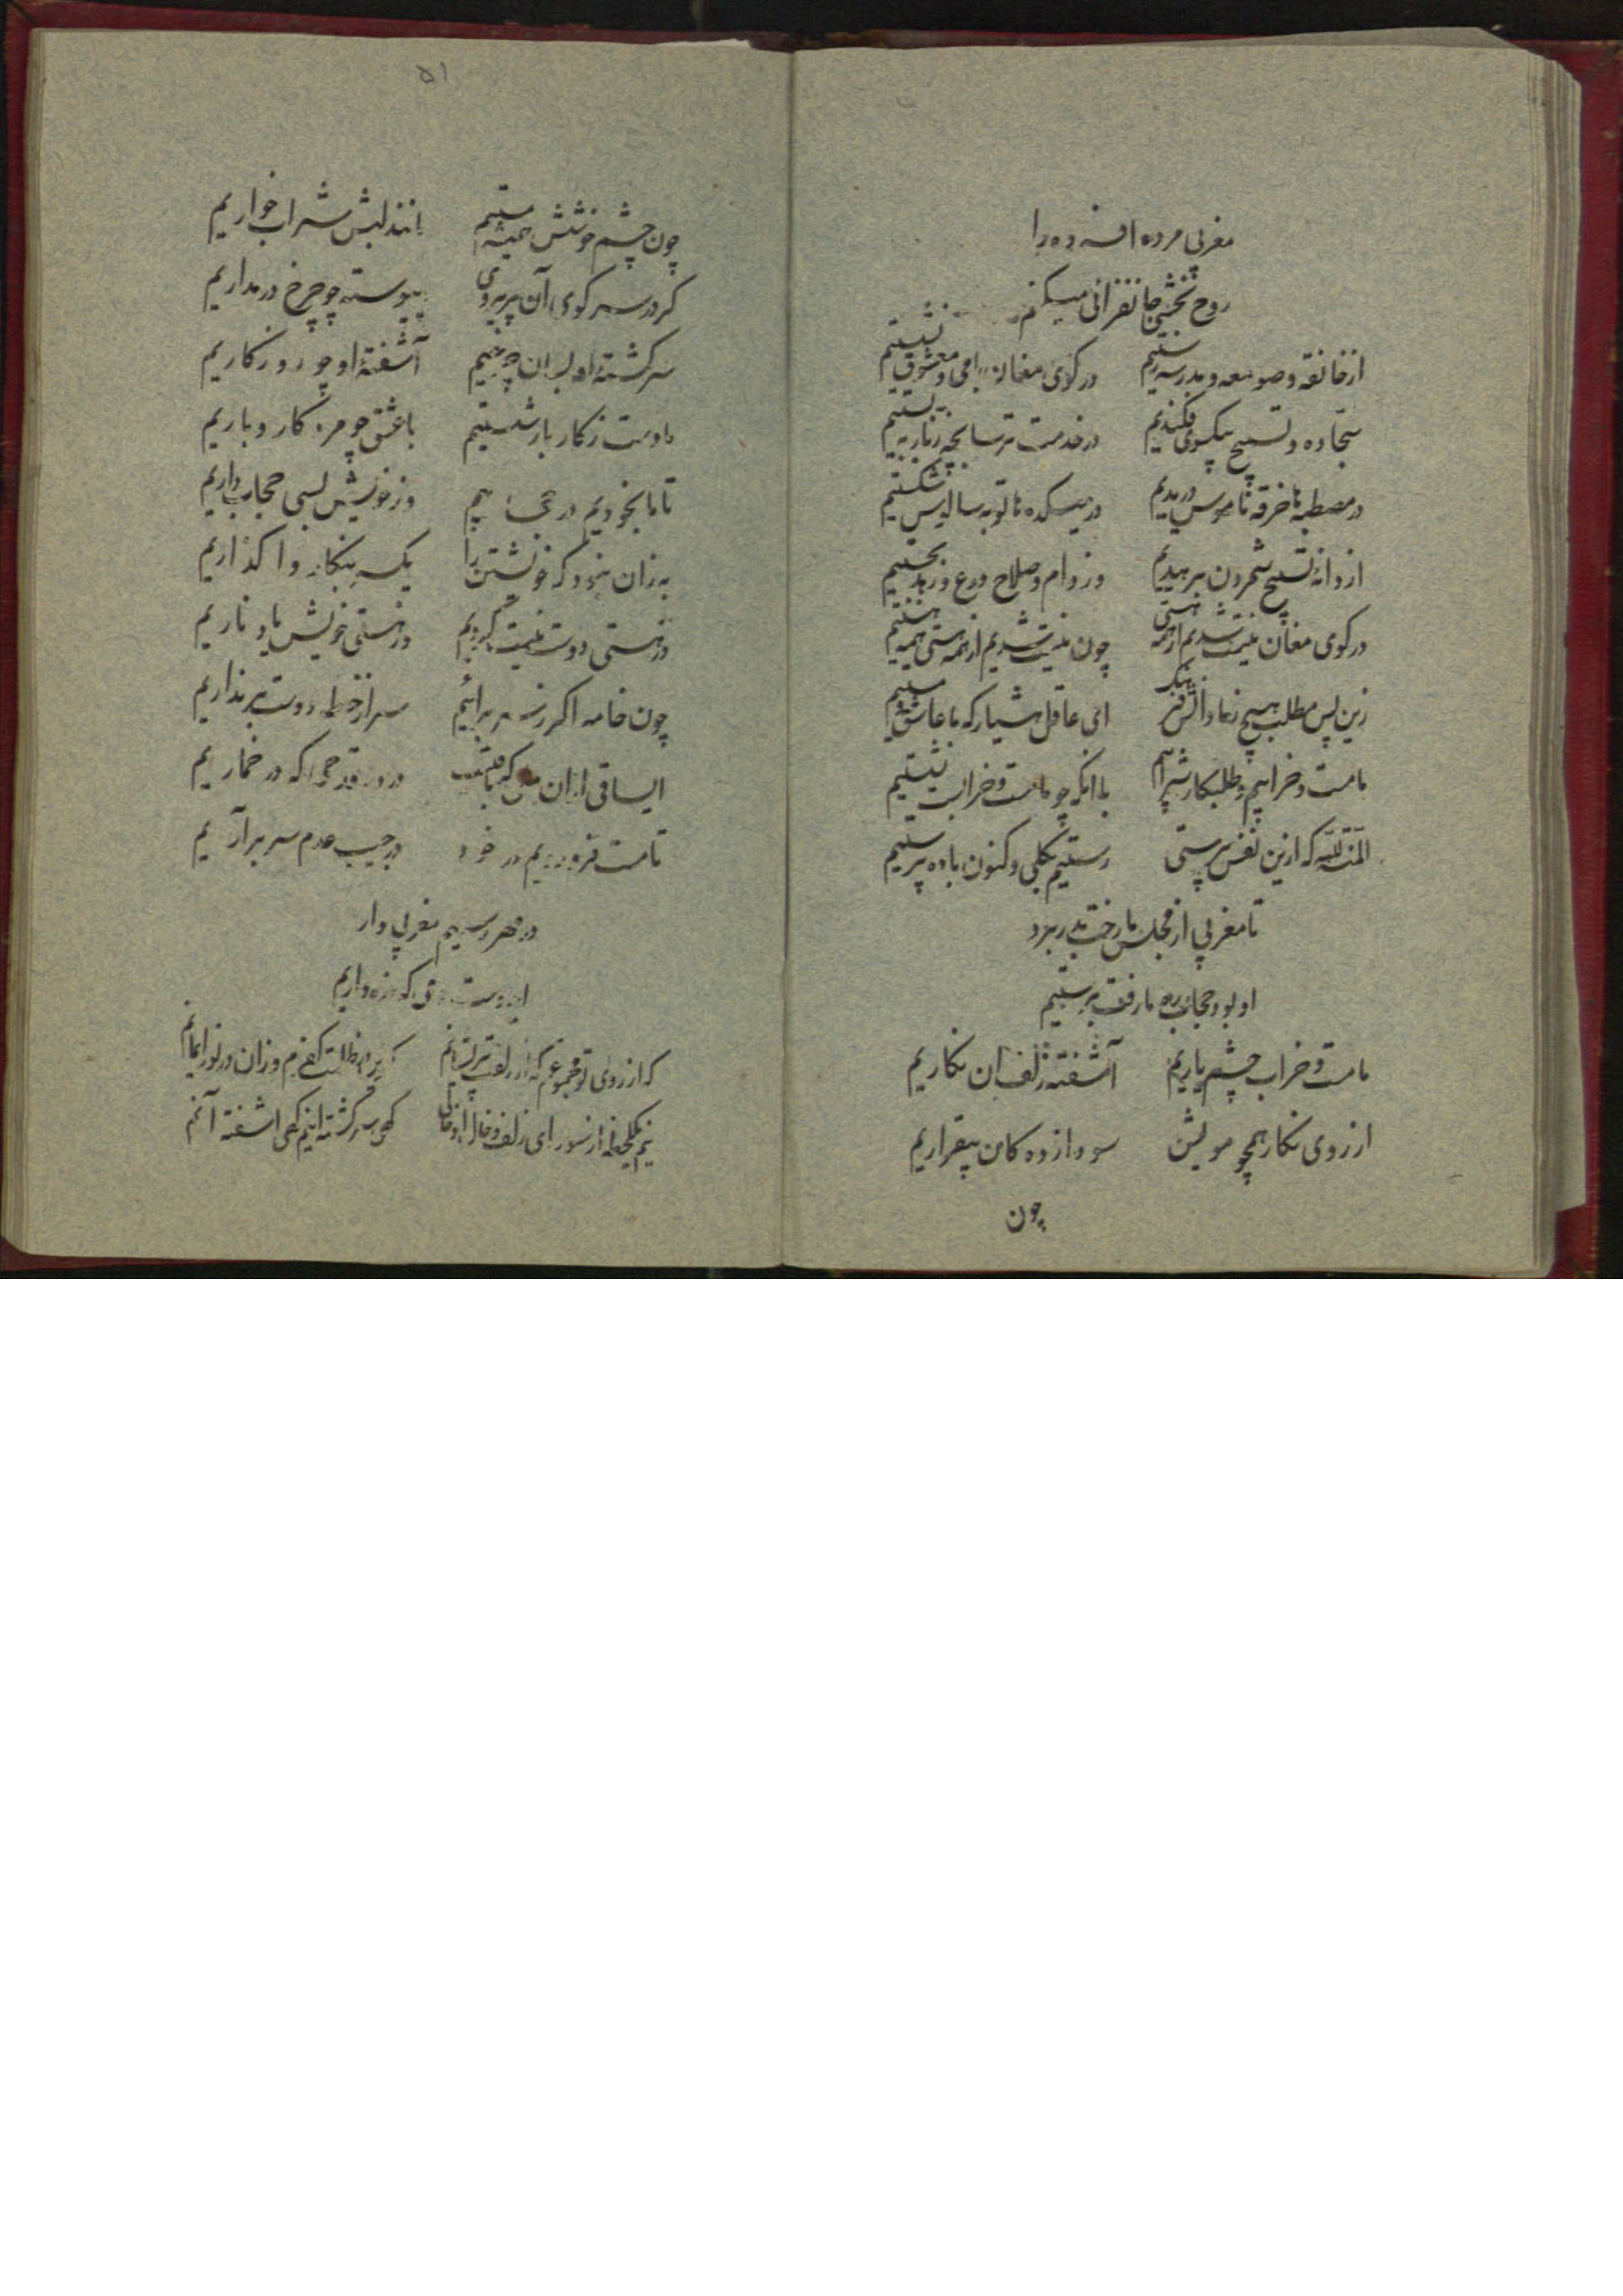 مغربی مرده افسرده را
روح بخشی جانفزائی میکنم
از خانقه و صومعه و مدرسه رستیم در کوی مغان با می و معشوق نشستیم
سجاده و تسبیح بیکسوی فکندیم در خدمت ترسا بچه زنار ببستیم
در مصطبه ها خرقه ناموس دریدیم در میکده ها توبه سالوس شکستیم
از دانه تسبیح شمردن برهیدیم وز دام صلاح و ورع و زهد بجستیم
در کوی مغان نیست شدیم از همه هستی چون نیست شدیم از همه هستی همه هستیم
زین پس مطلب هیچ ز ما دانش و فرهنگ ای عاقل هشیار که ما عاشق و مستیم
ما مست و خرابیم و طلبکار شرابیم با آنکه چو ما مست و خرابست نشستیم
المنة لله که ازین نفس پرستی رستیم بکلی و کنون باده پرستیم
تا مغربی از مجلس ما رخت بدر برد
او بود حجاب ره ما رفت برستیم
ما مست و خراب چشم یاریم آشفته زلف آن نگاریم
از روی نگار همچو مویش سودازده کان بیقراریم
چون
۵۱
چون چشم خوشش همیشه مستیم مانند لبش شراب خواریم
کرد سر کوی آن پریروی پیوسته چو چرخ در مداریم
سرکشته او بسان چرخیم آشفته او چو روزکاریم
با دوست ز کار باز شستیم با عشق چو مرد کار و باریم
تا ما بخودیم در حجابیم وز خویش بسی حجاب داریم
به زان نبود که خویشتن را یکسر بنکار وا کذاریم
در هستی دوست نیست کردیم در هستی خویش یاد ناریم
چون خامه اکر ز سر برائیم سر از خط دوست بر نداریم
ایساقی از آن می که باقیست در ده قدحی که در خماریم
تا مست فرو رویم در خود در جیب عدم سر برآریم
در مهر رسیم مغربی وار
ایدوست دمی که ذره واریم
که از روی تو مجموعم که از زلفت پریشانم کزین در ظلمت کفرم وزان در نور ایمانم
نیم یکلحظه از سودای زلف و خال او خالی کهی سرکشته اینم کهی آشفته آنم